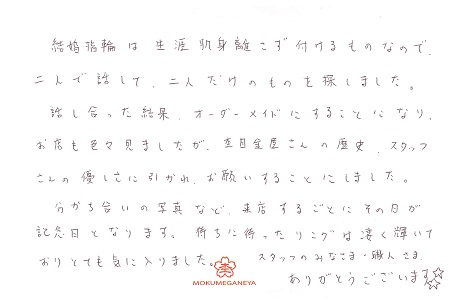 結婚指輪は生涯肌身離さず付けるものなので、
二人で話して、二人だけのものを探しました。
話し合った結果、オーダーメイドにすることになり、
お店も色々見ましたが、杢目金屋さんの歴史、スタッフ
さんの優しさに引かれ、お願いすることにしました。
分かち合いの写真など、来店するごとにその日が
記念日となります。待ちに待ったリングは凄く輝いて
おりとても気に入りました。スタッフのみなさま・職人さま、
ありがとうございます☆☆
MOKUMEGANEYA